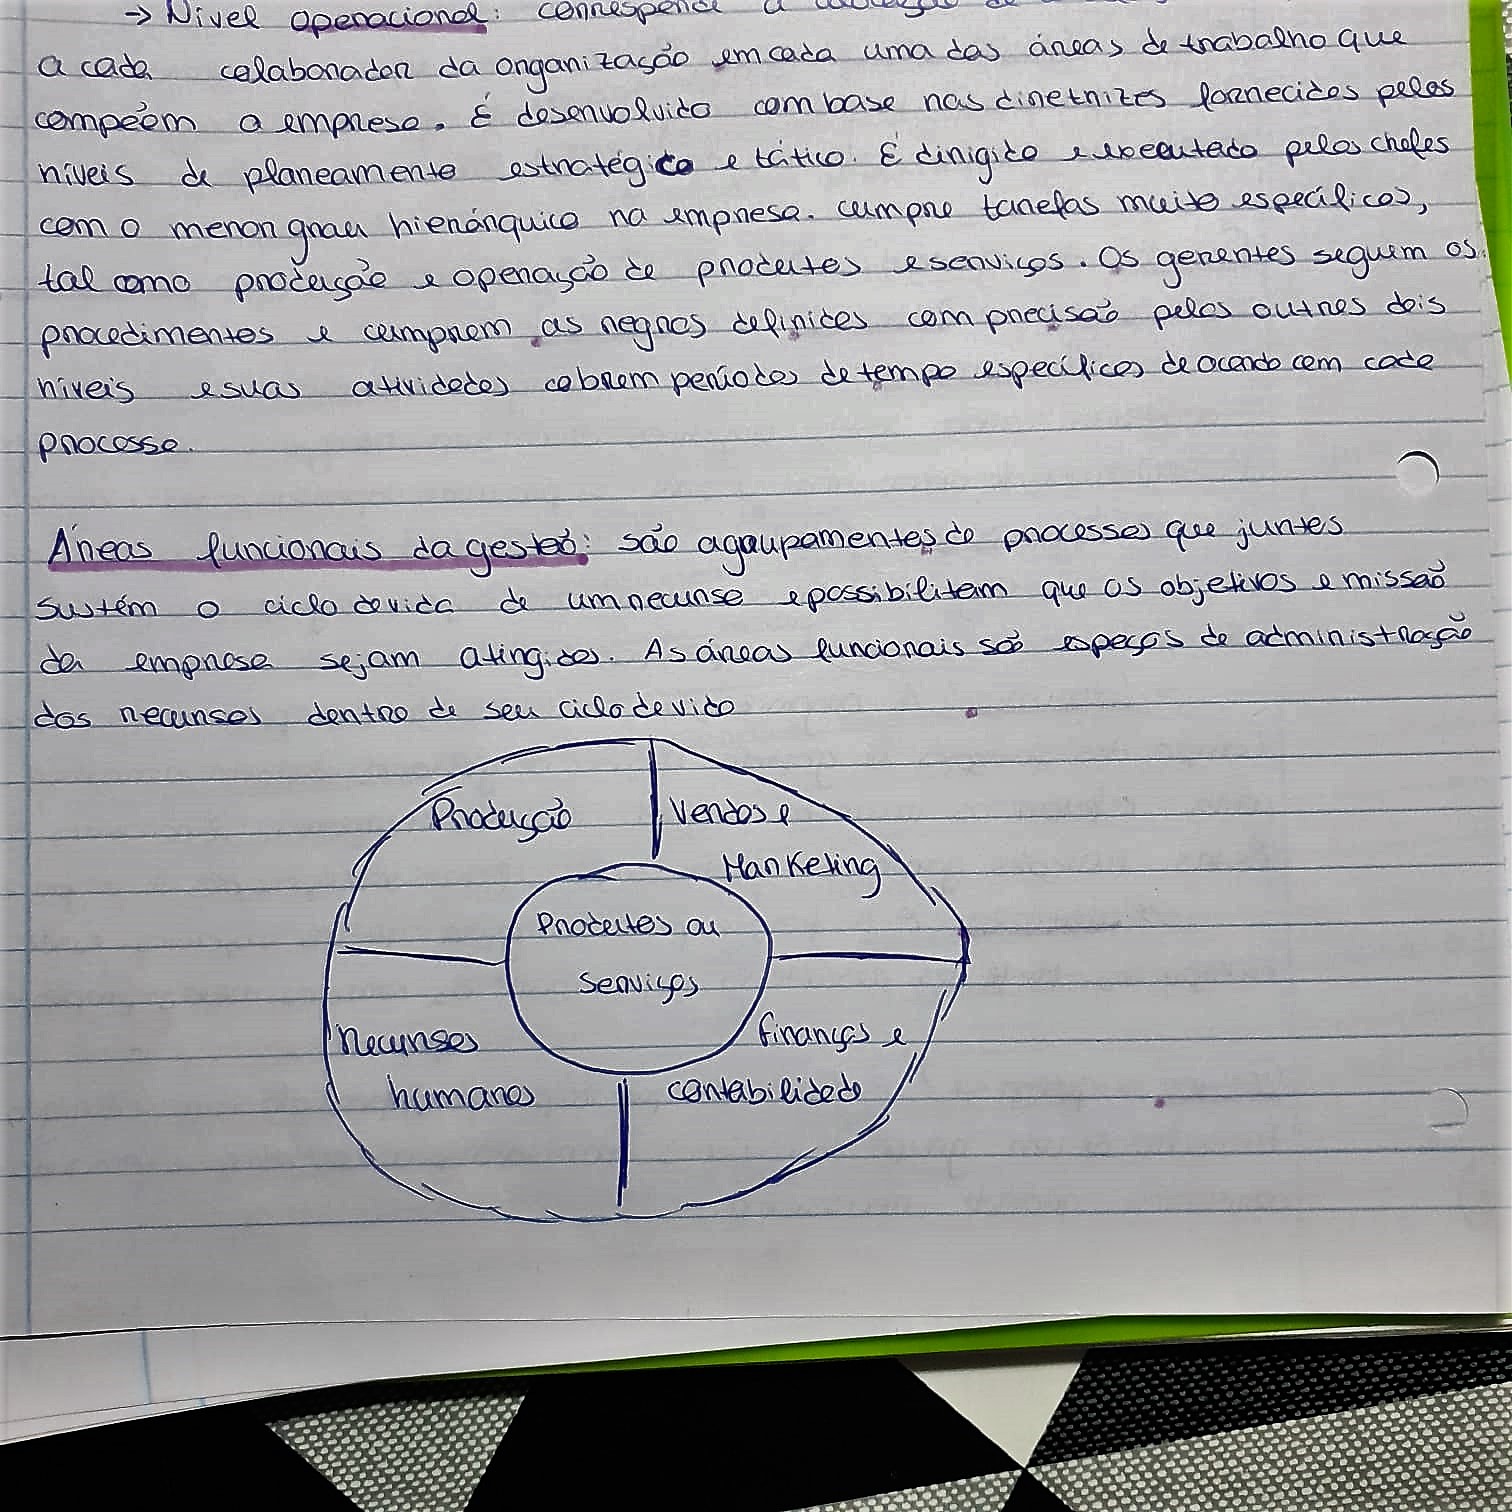 → Nível operacional: corresponde a
a cada colaborador da organização em cada uma das áreas de trabalho que
compõem a empresa. É desenvolvido com base nas diretrizes fornecidas pelos
níveis de planeamento estratégico e tático. É dirigido e executado pelos chefes
com o menor grau hierárquico na empresa. cumpre tarefas muito específicas,
tal como produção e operação de produtos e serviços. Os gerentes seguem os
procedimentos e cumprem as regras definidas com precisão pelos outros dois
níveis e suas atividades cobrem períodos de tempo específicos de acordo com cada
processo.
Áreas funcionais da gestão: são agrupamentos de processos que juntos
sustém o ciclo de vida de um recurso e possibilitam que os objetivos e missão
da empresa sejam atingidos. As áreas funcionais são espaços de administração
dos recursos dentro de seu ciclo de vida
Produção
Vendas e
Marketing
Produtos ou
Serviços
Recursos
humanos
Finanças e
contabilidade